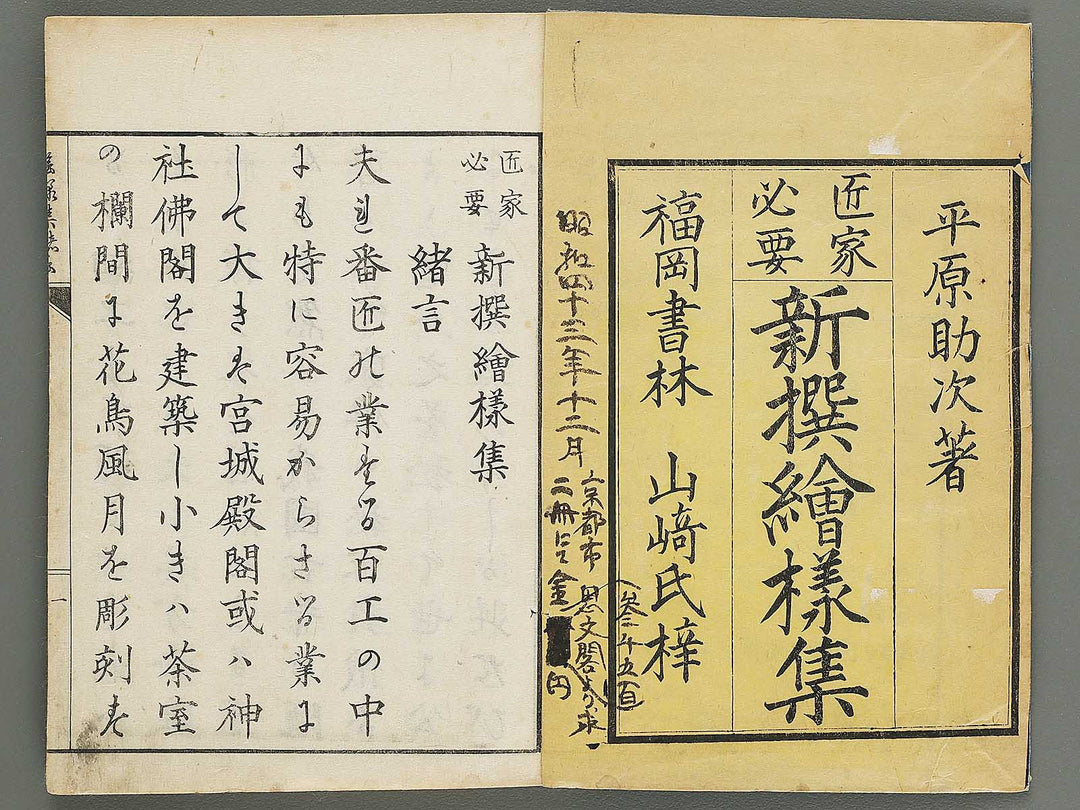 平原助次著
匠家
必要
新撰繪樣集
福岡書林　山﨑氏梓
昭和四十三年十二月
京都市 思文閣
二冊にて金 円
匠家
必要
新撰繪樣集
緒言
夫れ番匠の業たる百工の中
にも特に容易からさる業に
して大きは宮城殿閣或ハ神
社佛閣を建築し小きハ茶室
の欄間に花鳥風月を彫刻す